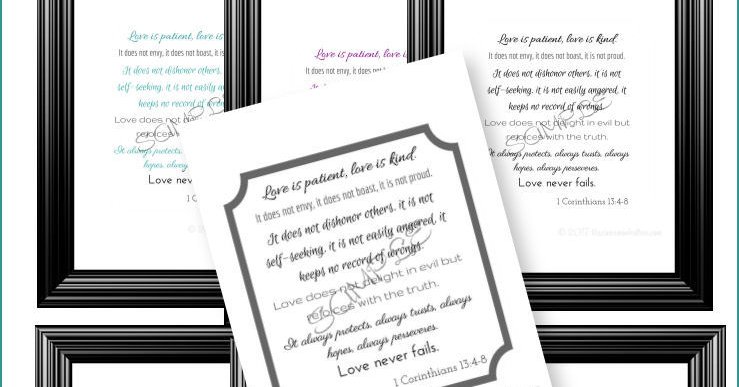 Love is patient, love is kind.
It does not envy, it does not boast, it is not proud.
It does not dishonor others, it is not
self-seeking, it is not easily angered, it
keeps no record of
Love does not
rejoices
It always protects,
hopes, always
Love never
SAMPLE
Love is patient, love is kind.
It does not envy, it does not boast,
Love is patient, love is kind.
It does not envy, it does not boast, it is not proud.
It does not dishonor others, it is not
self-seeking, it is not easily angered, it
keeps no record of wrongs.
Love does not delight in evil but
rejoices with the truth.
It always protects, always trusts, always
hopes, always perseveres.
Love never fails.
1 Corinthians 13:4-8
SAMPLE
Love is patient, love is kind.
It does not envy, it does not boast, it is not proud.
It does not dishonor others, it is not
self-seeking, it is not easily angered, it
keeps no record of wrongs.
Love does not delight in evil but
rejoices with the truth.
It always protects, always trusts, always
hopes, always perseveres.
Love never fails.
1 Corinthians 13:4-8
SAMPLE